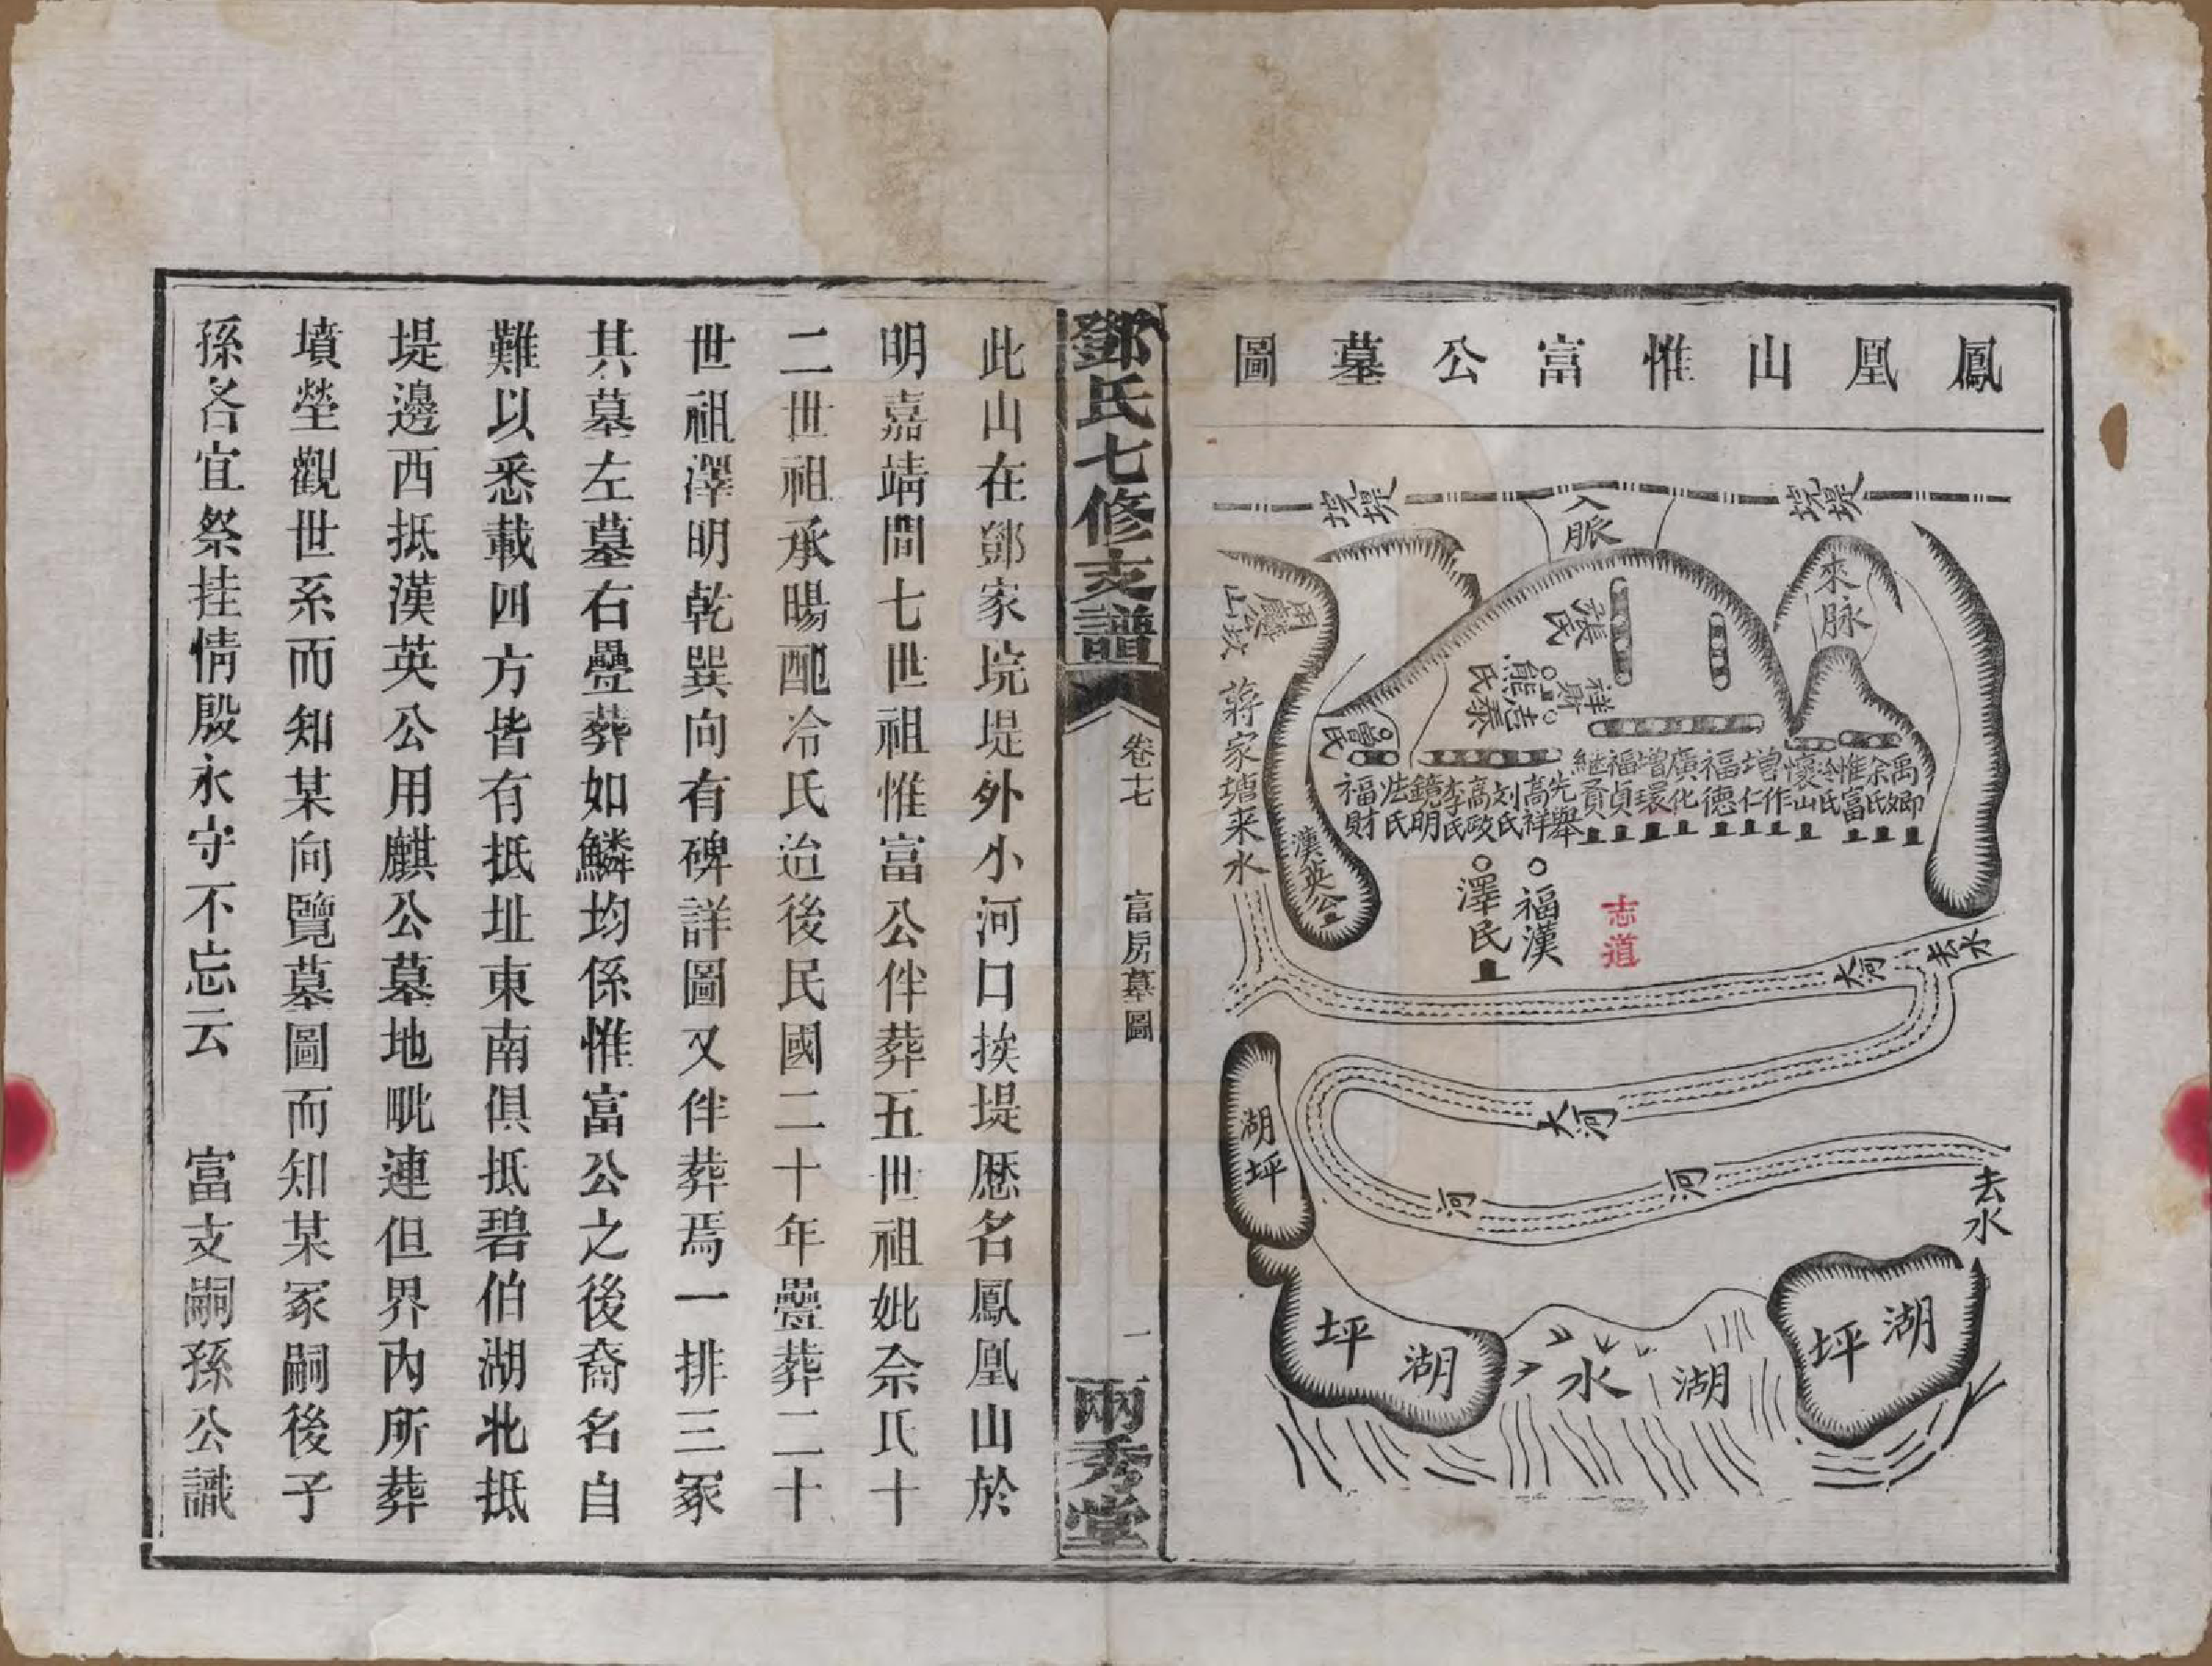 鳳凰山惟富公墓圖
垸堤
垸堤
入脈
來脉
張氏
祥財
熊氏
志泰
曾氏
禹卿
余氏
惟富
冷氏
懷山
增作
增仁
福德
廣化
增環
福貞
継賢
先舉
高祥
刘氏
高政
李氏
鏡明
法氏
福財
蔣家塘来水
漢英公
澤民
福漢
志道
大河
去水
大河
河
河
去水
湖坪
湖坪
水湖
湖坪
鄧氏七修支譜
卷十七
富房墓圖
一
兩秀堂
此山在鄧家垸堤外小河口挨堤歷名鳳凰山於
明嘉靖間七世祖惟富公伴葬五世祖妣余氏十
二世祖承暘配冷氏迨後民國二十年疊葬二十
世祖澤明乾巽向有碑詳圖又伴葬焉一排三冢
其墓左墓右疊葬如鱗均係惟富公之後裔名自
難以悉載四方皆有抵址東南俱抵碧伯湖北抵
堤邊西抵漢英公用麒公墓地毗連但界內所葬
墳塋觀世系而知某向覽墓圖而知某冢嗣後子
孫各宜祭挂情殷永守不忘云　富支嗣孫公識